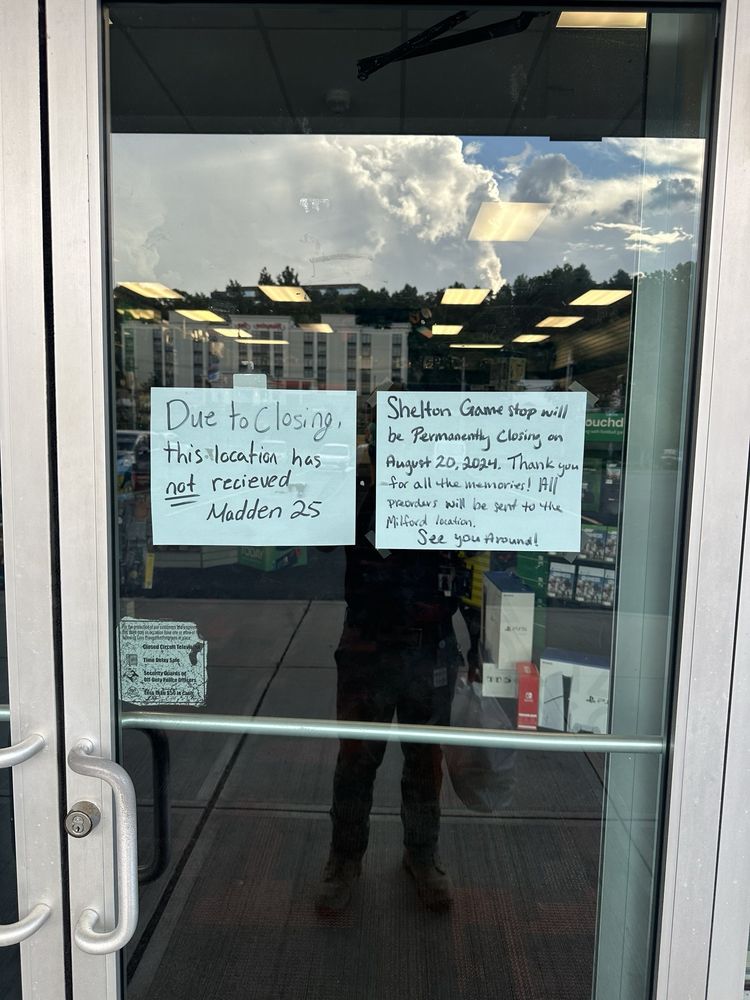 Due to Closing,
this location has
not recieved
Madden 25
Shelton Gamestop will
be Permanently Closing on
August 20, 2024. Thank you
for all the memories! All
preorders will be sent to the
Milford location.
See you Around!
ouchd
Closed Circuit Televis
Time Delay Safe
Security Guards or
Off Duty Police Officers
Less than $50 in cash
PS5